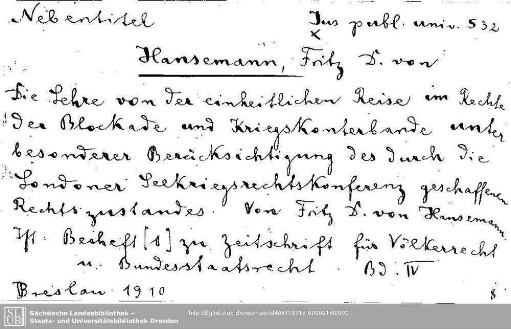 Nebentitel
Jus publ. univ. 532
x
Hansemann, Fritz D. von
Die Lehre von der einheitlichen Reise im Rechte
der Blockade und Kriegskonterbande unter
besonderer Berücksichtigung des durch die
Londoner Seekriegsrechtskonferenz geschaffenen
Rechtszustandes. Von Fritz D. von Hansemann
Ist: Beiheft [1] zu Zeitschrift für Völkerrecht
u. Bundesstaatsrecht. Bd. IV
Breslau 1910
8
SLUB
Sächsische Landesbibliothek –
Staats- und Universitätsbibliothek Dresden